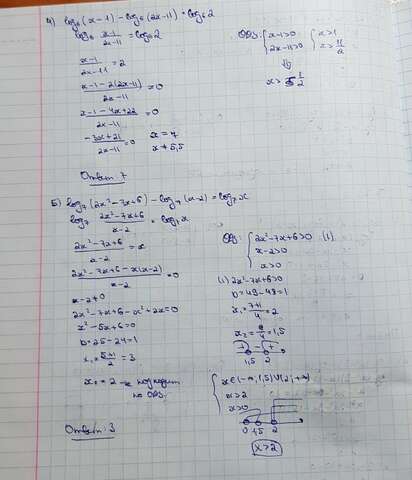 4) log₆(x-1) - log₆(2x-11) = log₆2
log₆ (x-1)/(2x-11) = log₆2
(x-1)/(2x-11) = 2
(x-1-2(2x-11))/(2x-11) = 0
(x-1-4x+22)/(2x-11) = 0
(-3x+21)/(2x-11) = 0 x = 7
x ≠ 5,5
ОДЗ: { x-1>0 { x>1
2x-11>0 x>11/2
⇓
x > 5 1/2
Ответ 7
5) log₇(2x²-7x+6) - log₇(x-2) = log₇x
log₇ (2x²-7x+6)/(x-2) = log₇x
(2x²-7x+6)/(x-2) = x
(2x²-7x+6-x(x-2))/(x-2) = 0
x-2≠0
2x²-7x+6-x²+2x=0
x²-5x+6=0
D=25-24=1
x₁=(5+1)/2 = 3
x₂ = 2 - не подходит
по ОДЗ.
ОДЗ: { 2x²-7x+6>0 (1)
x-2>0
x>0
(1) 2x²-7x+6>0
D=49-48=1
x₁=(7+1)/4=2
x₂=6/4=1,5
+ - +
1,5 2
{ x∈(-∞;1,5)∪(2;+∞)
x>2
x>0
0 1,5 2
x>2
Ответ: 3